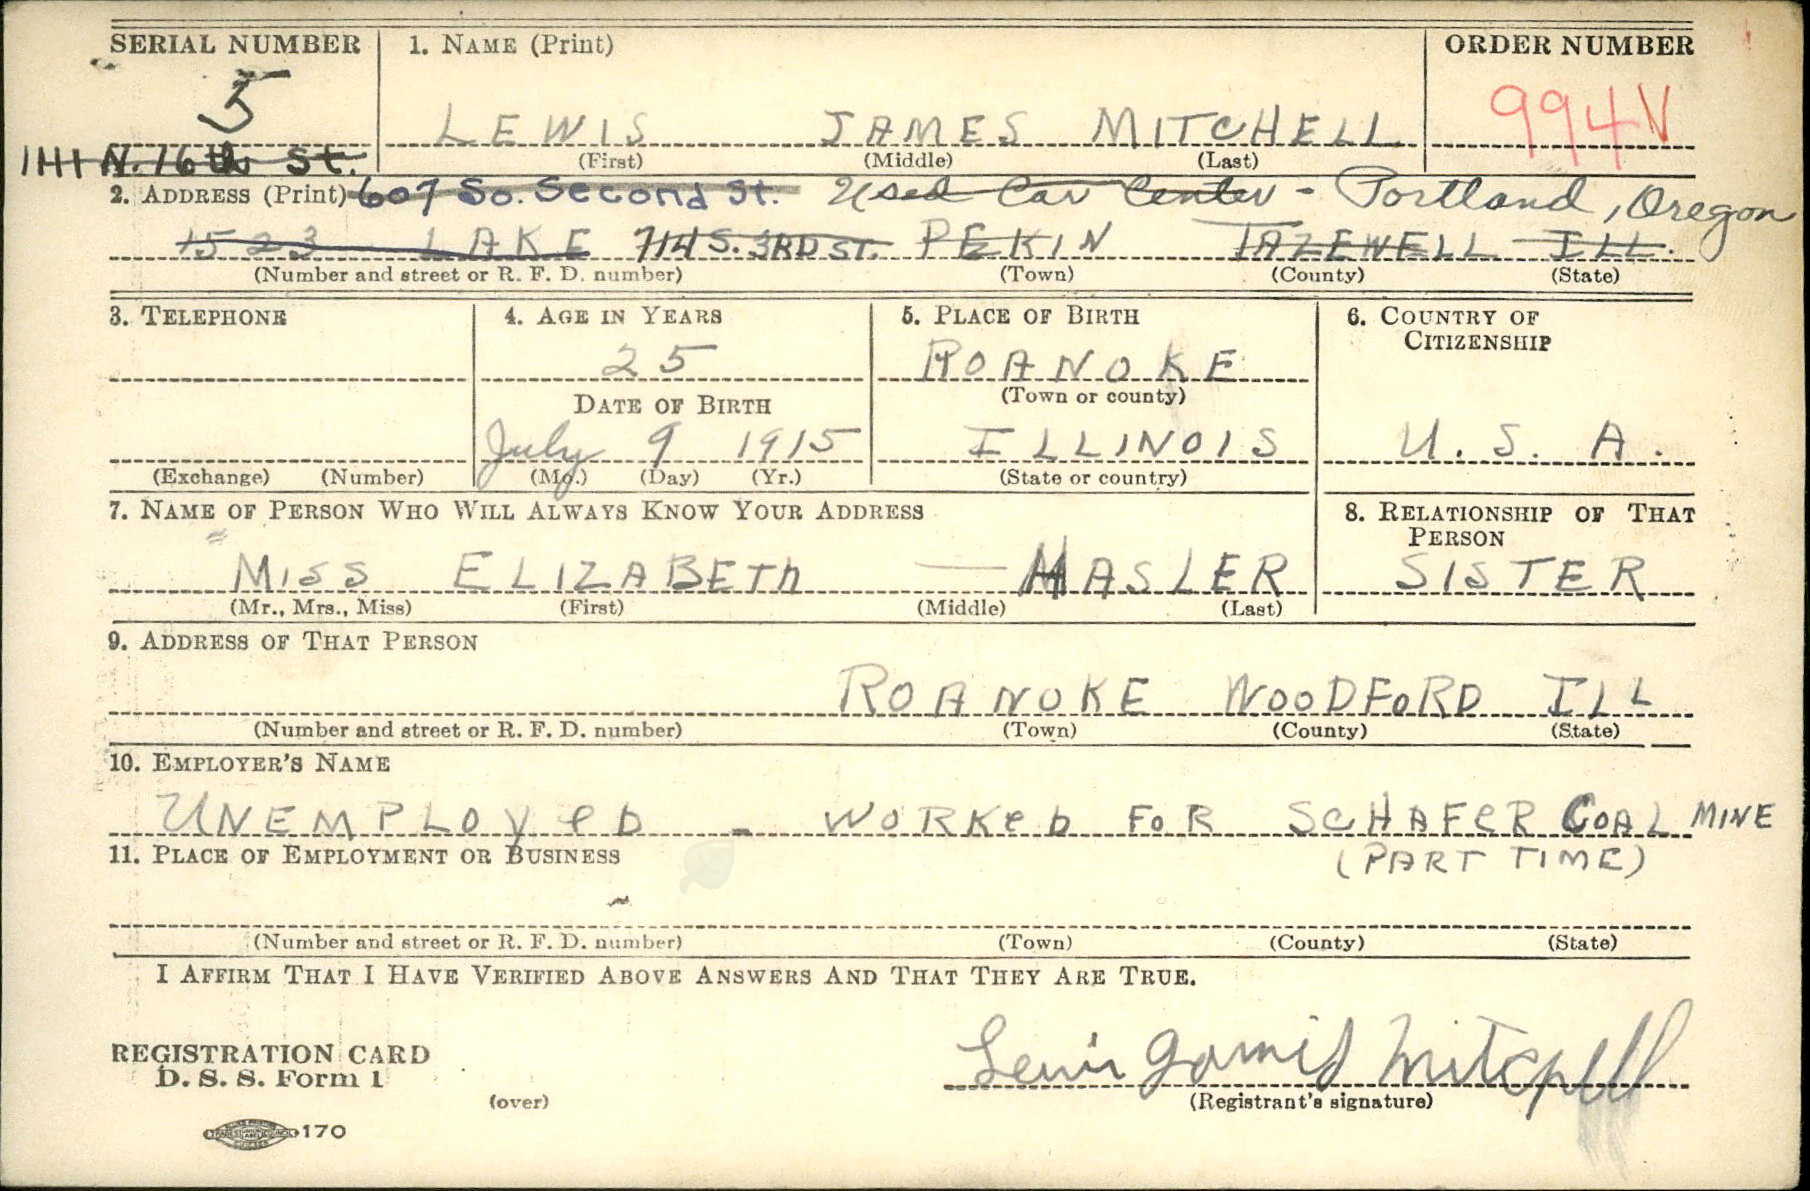 SERIAL NUMBER 1. NAME (Print) ORDER NUMBER
5 LEWIS JAMES MITCHELL 994V
(First) (Middle) (Last)
1141 N. 16th St.
2. ADDRESS (Print) 607 So. Second St. Used Car Center - Portland, Oregon
1523 LAKE 714 S. 3RD ST. PEKIN TAZEWELL ILL.
(Number and street or R. F. D. number) (Town) (County) (State)
3. TELEPHONE 4. AGE IN YEARS 5. PLACE OF BIRTH 6. COUNTRY OF
CITIZENSHIP
25 ROANOKE
DATE OF BIRTH (Town or county)
July 9 1915 ILLINOIS U. S. A.
(Exchange) (Number) (Mo.) (Day) (Yr.) (State or country)
7. NAME OF PERSON WHO WILL ALWAYS KNOW YOUR ADDRESS 8. RELATIONSHIP OF THAT
PERSON
MISS ELIZABETH — HASLER SISTER
(Mr., Mrs., Miss) (First) (Middle) (Last)
9. ADDRESS OF THAT PERSON
ROANOKE WOODFORD ILL
(Number and street or R. F. D. number) (Town) (County) (State)
10. EMPLOYER'S NAME
UNEMPLOYED - WORKED FOR SCHAFER COAL MINE
11. PLACE OF EMPLOYMENT OR BUSINESS (PART TIME)
(Number and street or R. F. D. number) (Town) (County) (State)
I AFFIRM THAT I HAVE VERIFIED ABOVE ANSWERS AND THAT THEY ARE TRUE.
REGISTRATION CARD
D. S. S. Form 1
Lewis James Mitchell
(over) (Registrant's signature)
170